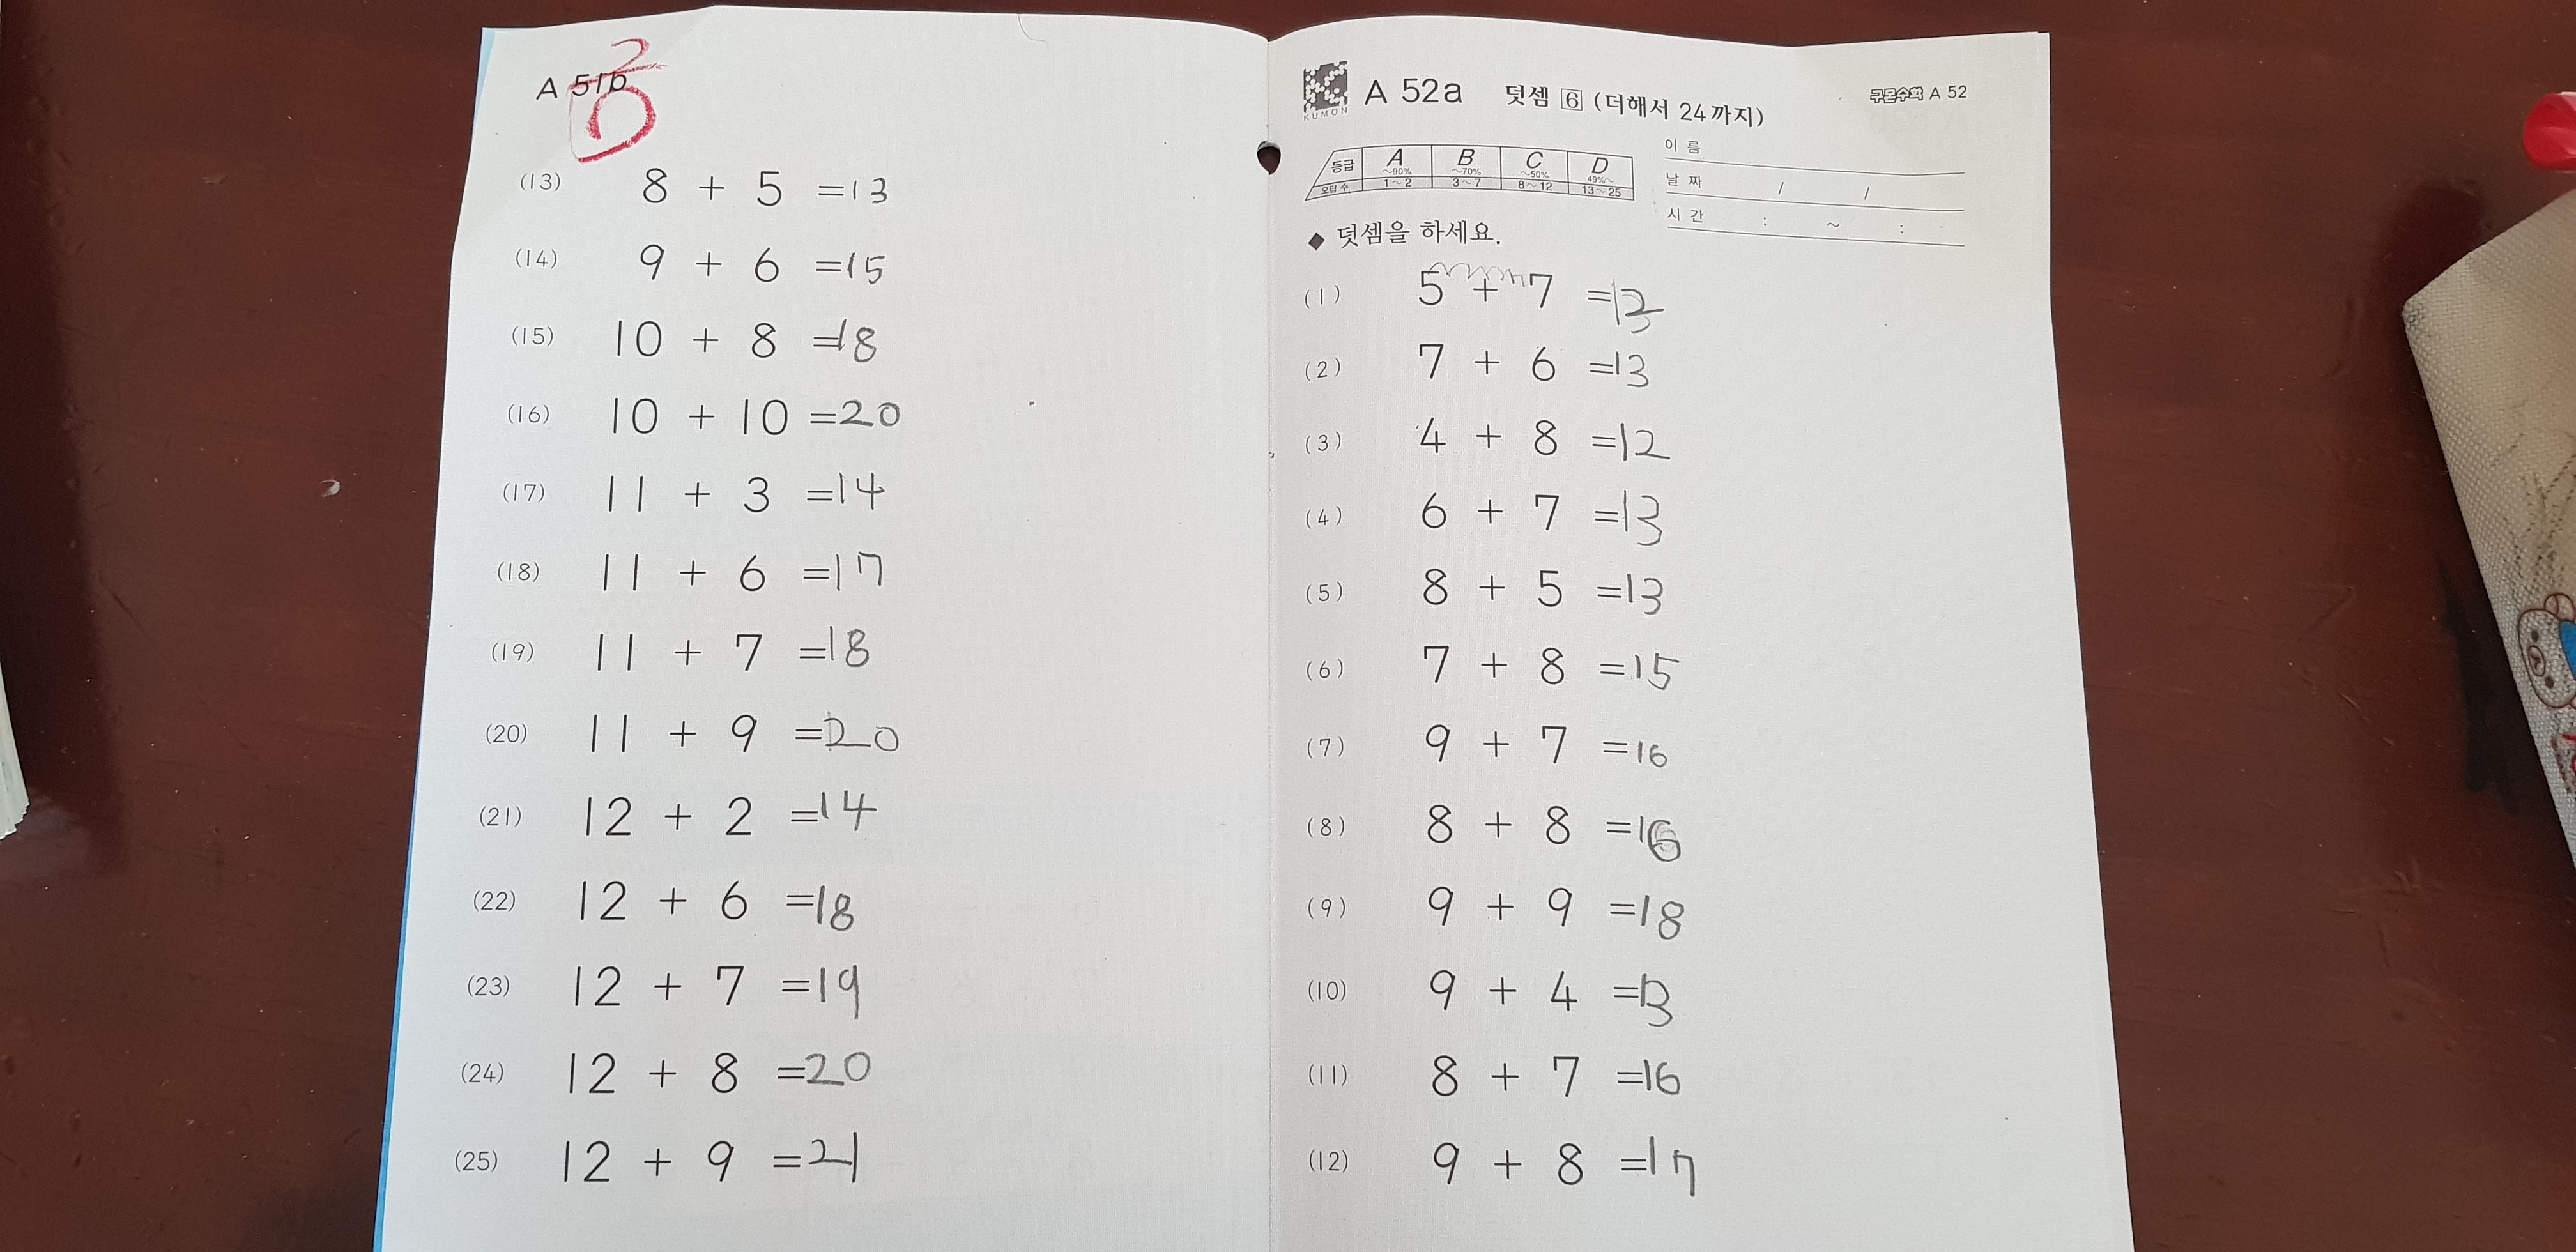 A 51b
(13) 8 + 5 =13
(14) 9 + 6 =15
(15) 10 + 8 =18
(16) 10 + 10 =20
(17) 11 + 3 =14
(18) 11 + 6 =17
(19) 11 + 7 =18
(20) 11 + 9 =20
(21) 12 + 2 =14
(22) 12 + 6 =18
(23) 12 + 7 =19
(24) 12 + 8 =20
(25) 12 + 9 =21
KUMON
A 52a 덧셈 6 (더해서 24까지)
구몬수학 A 52
등급 A B C D
~90% ~70% ~50% 49%~
오답수 1~2 3~7 8~12 13~25
이름
날짜 / /
시간 : ~ :
◆ 덧셈을 하세요.
(1) 5 + 7 =12
(2) 7 + 6 =13
(3) 4 + 8 =12
(4) 6 + 7 =13
(5) 8 + 5 =13
(6) 7 + 8 =15
(7) 9 + 7 =16
(8) 8 + 8 =16
(9) 9 + 9 =18
(10) 9 + 4 =13
(11) 8 + 7 =16
(12) 9 + 8 =17